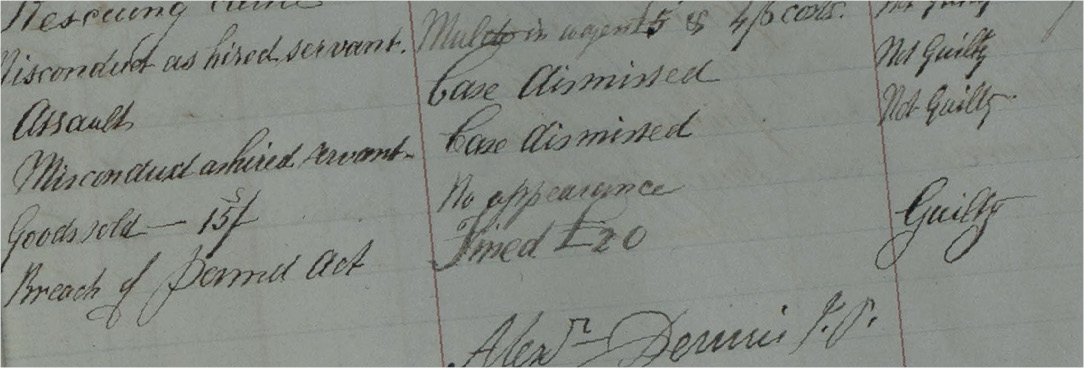 Rescuing cattle Not Guilty
Misconduct as hired servant. Mulcted in wages £5 & 4/6 costs. Not Guilty
Assault Case dismissed Not Guilty
Misconduct as hired servant Case dismissed
Goods sold — 15/ No appearance
Breach of Permit Act Fined £20 Guilty
Alexr Dennis J.P.